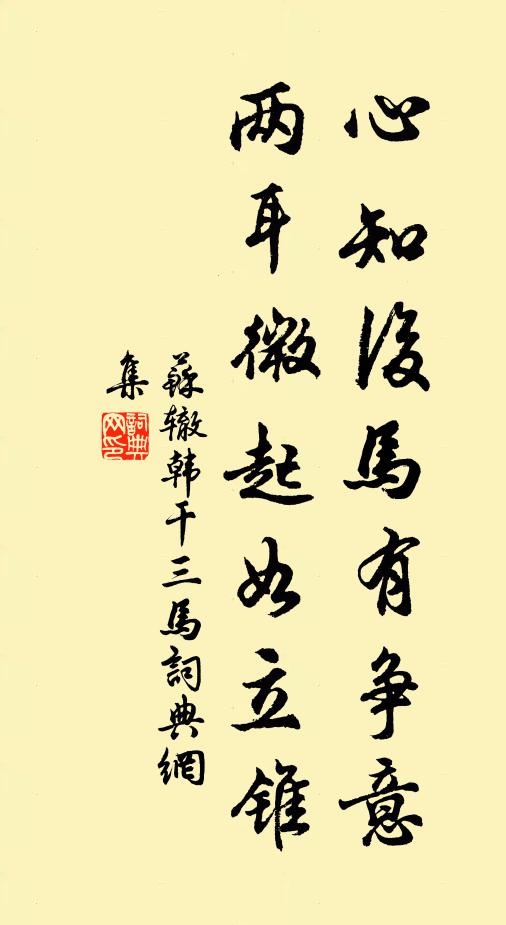 心知後馬有争意
两耳微起如立錐
蘇辙韩干三馬詞典網
集
詞典网印